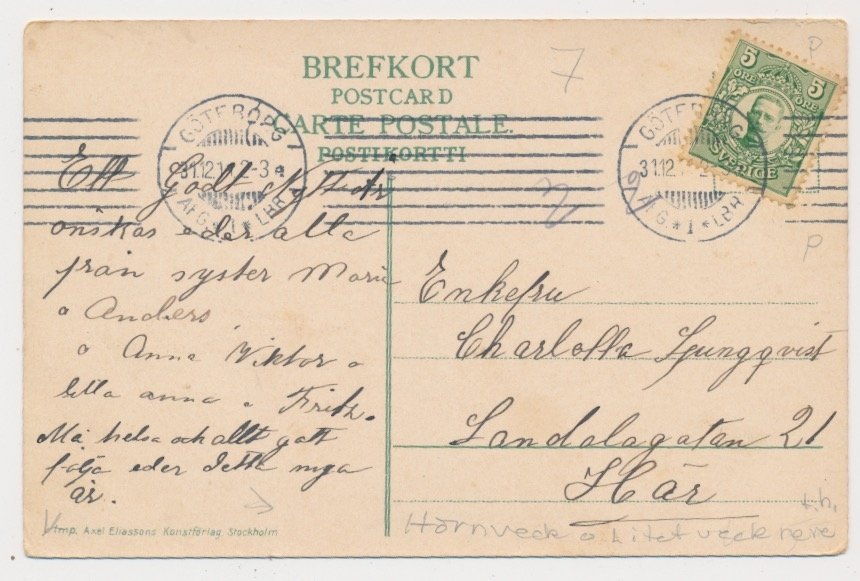 BREFKORT
POSTCARD
CARTE POSTALE.
POSTIKORTTI
7
P
5 5
ÖRE ÖRE
SVERIGE
GÖTEBORG
31.12.1 2-3
AFG. * 1 * LBR
GÖTEBORG
31.12.1
AFG. * 1 * LBR
P
Ett Godt Nytt år
önskas eder alla
från syster Maria
o Anders
o Anna Viktor o
lilla anna o Fritz.
Må helsa och allt gott
följa eder detta nya
år.
Enkefru
Charlotta Ljungqvist
Landalagatan 21
Här
t.h.
Hörnveck o. litet veck nere
Imp. Axel Eliassons Konstförlag. Stockholm